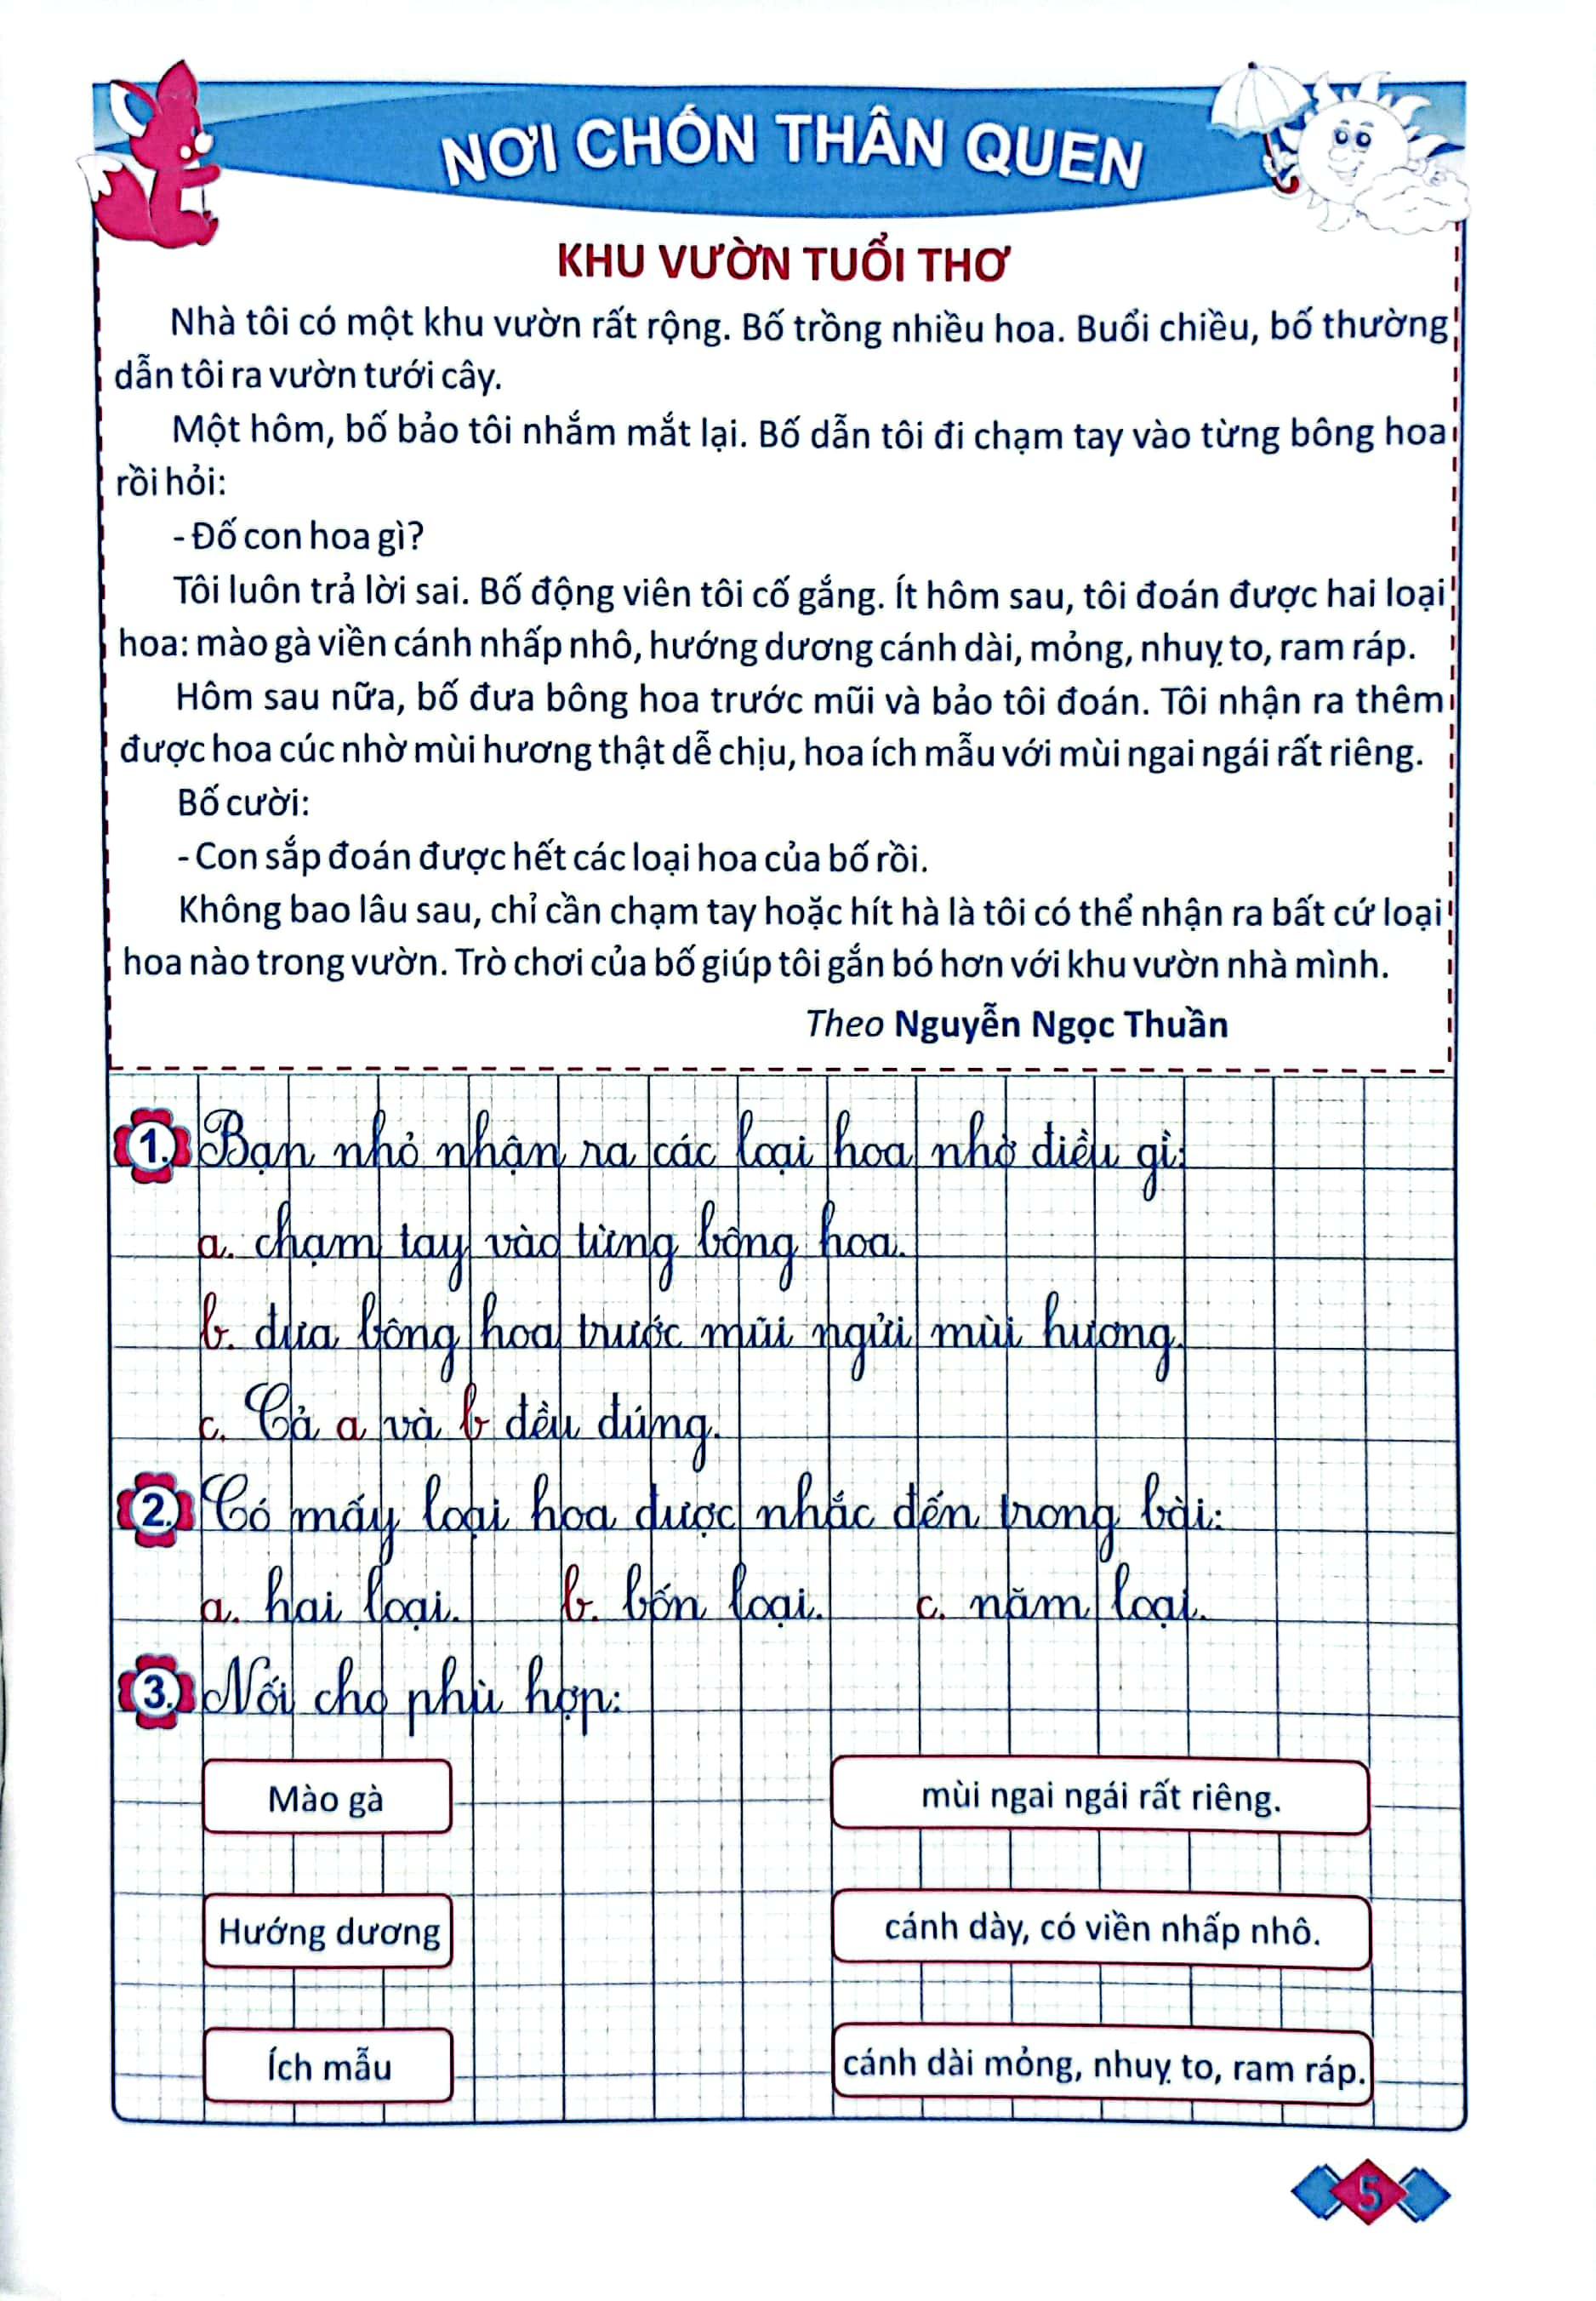 NƠI CHỐN THÂN QUEN
KHU VƯỜN TUỔI THƠ
Nhà tôi có một khu vườn rất rộng. Bố trồng nhiều hoa. Buổi chiều, bố thường
dẫn tôi ra vườn tưới cây.
Một hôm, bố bảo tôi nhắm mắt lại. Bố dẫn tôi đi chạm tay vào từng bông hoa
rồi hỏi:
- Đố con hoa gì?
Tôi luôn trả lời sai. Bố động viên tôi cố gắng. Ít hôm sau, tôi đoán được hai loại
hoa: mào gà viền cánh nhấp nhô, hướng dương cánh dài, mỏng, nhuỵ to, ram ráp.
Hôm sau nữa, bố đưa bông hoa trước mũi và bảo tôi đoán. Tôi nhận ra thêm
được hoa cúc nhờ mùi hương thật dễ chịu, hoa ích mẫu với mùi ngai ngái rất riêng.
Bố cười:
- Con sắp đoán được hết các loại hoa của bố rồi.
Không bao lâu sau, chỉ cần chạm tay hoặc hít hà là tôi có thể nhận ra bất cứ loại
hoa nào trong vườn. Trò chơi của bố giúp tôi gắn bó hơn với khu vườn nhà mình.
Theo Nguyễn Ngọc Thuần
1. Bạn nhỏ nhận ra các loại hoa nhờ điều gì:
a. chạm tay vào từng bông hoa.
b. đưa bông hoa trước mũi ngửi mùi hương.
c. Cả a và b đều đúng.
2. Có mấy loại hoa được nhắc đến trong bài:
a. hai loại. b. bốn loại. c. năm loại.
3. Nối cho phù hợp:
Mào gà
mùi ngai ngái rất riêng.
Hướng dương
cánh dày, có viền nhấp nhô.
Ích mẫu
cánh dài mỏng, nhuỵ to, ram ráp.
5